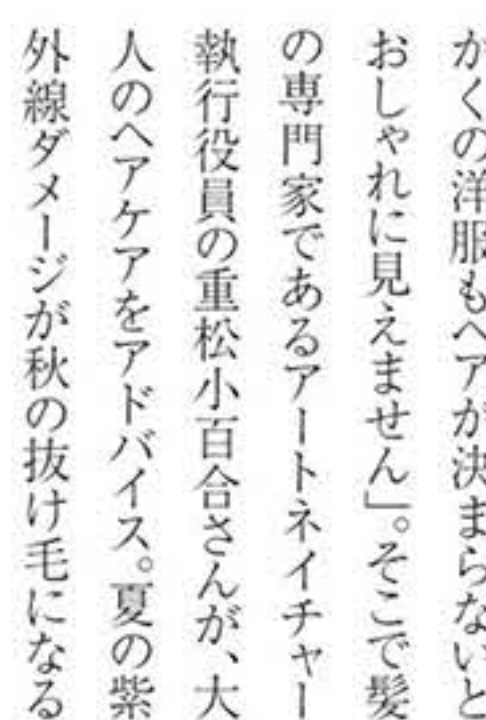 かくの洋服もヘアが決まらないと
おしゃれに見えません」。そこで髪
の専門家であるアートネイチャー
執行役員の重松小百合さんが、大
人のヘアケアをアドバイス。夏の紫
外線ダメージが秋の抜け毛になる